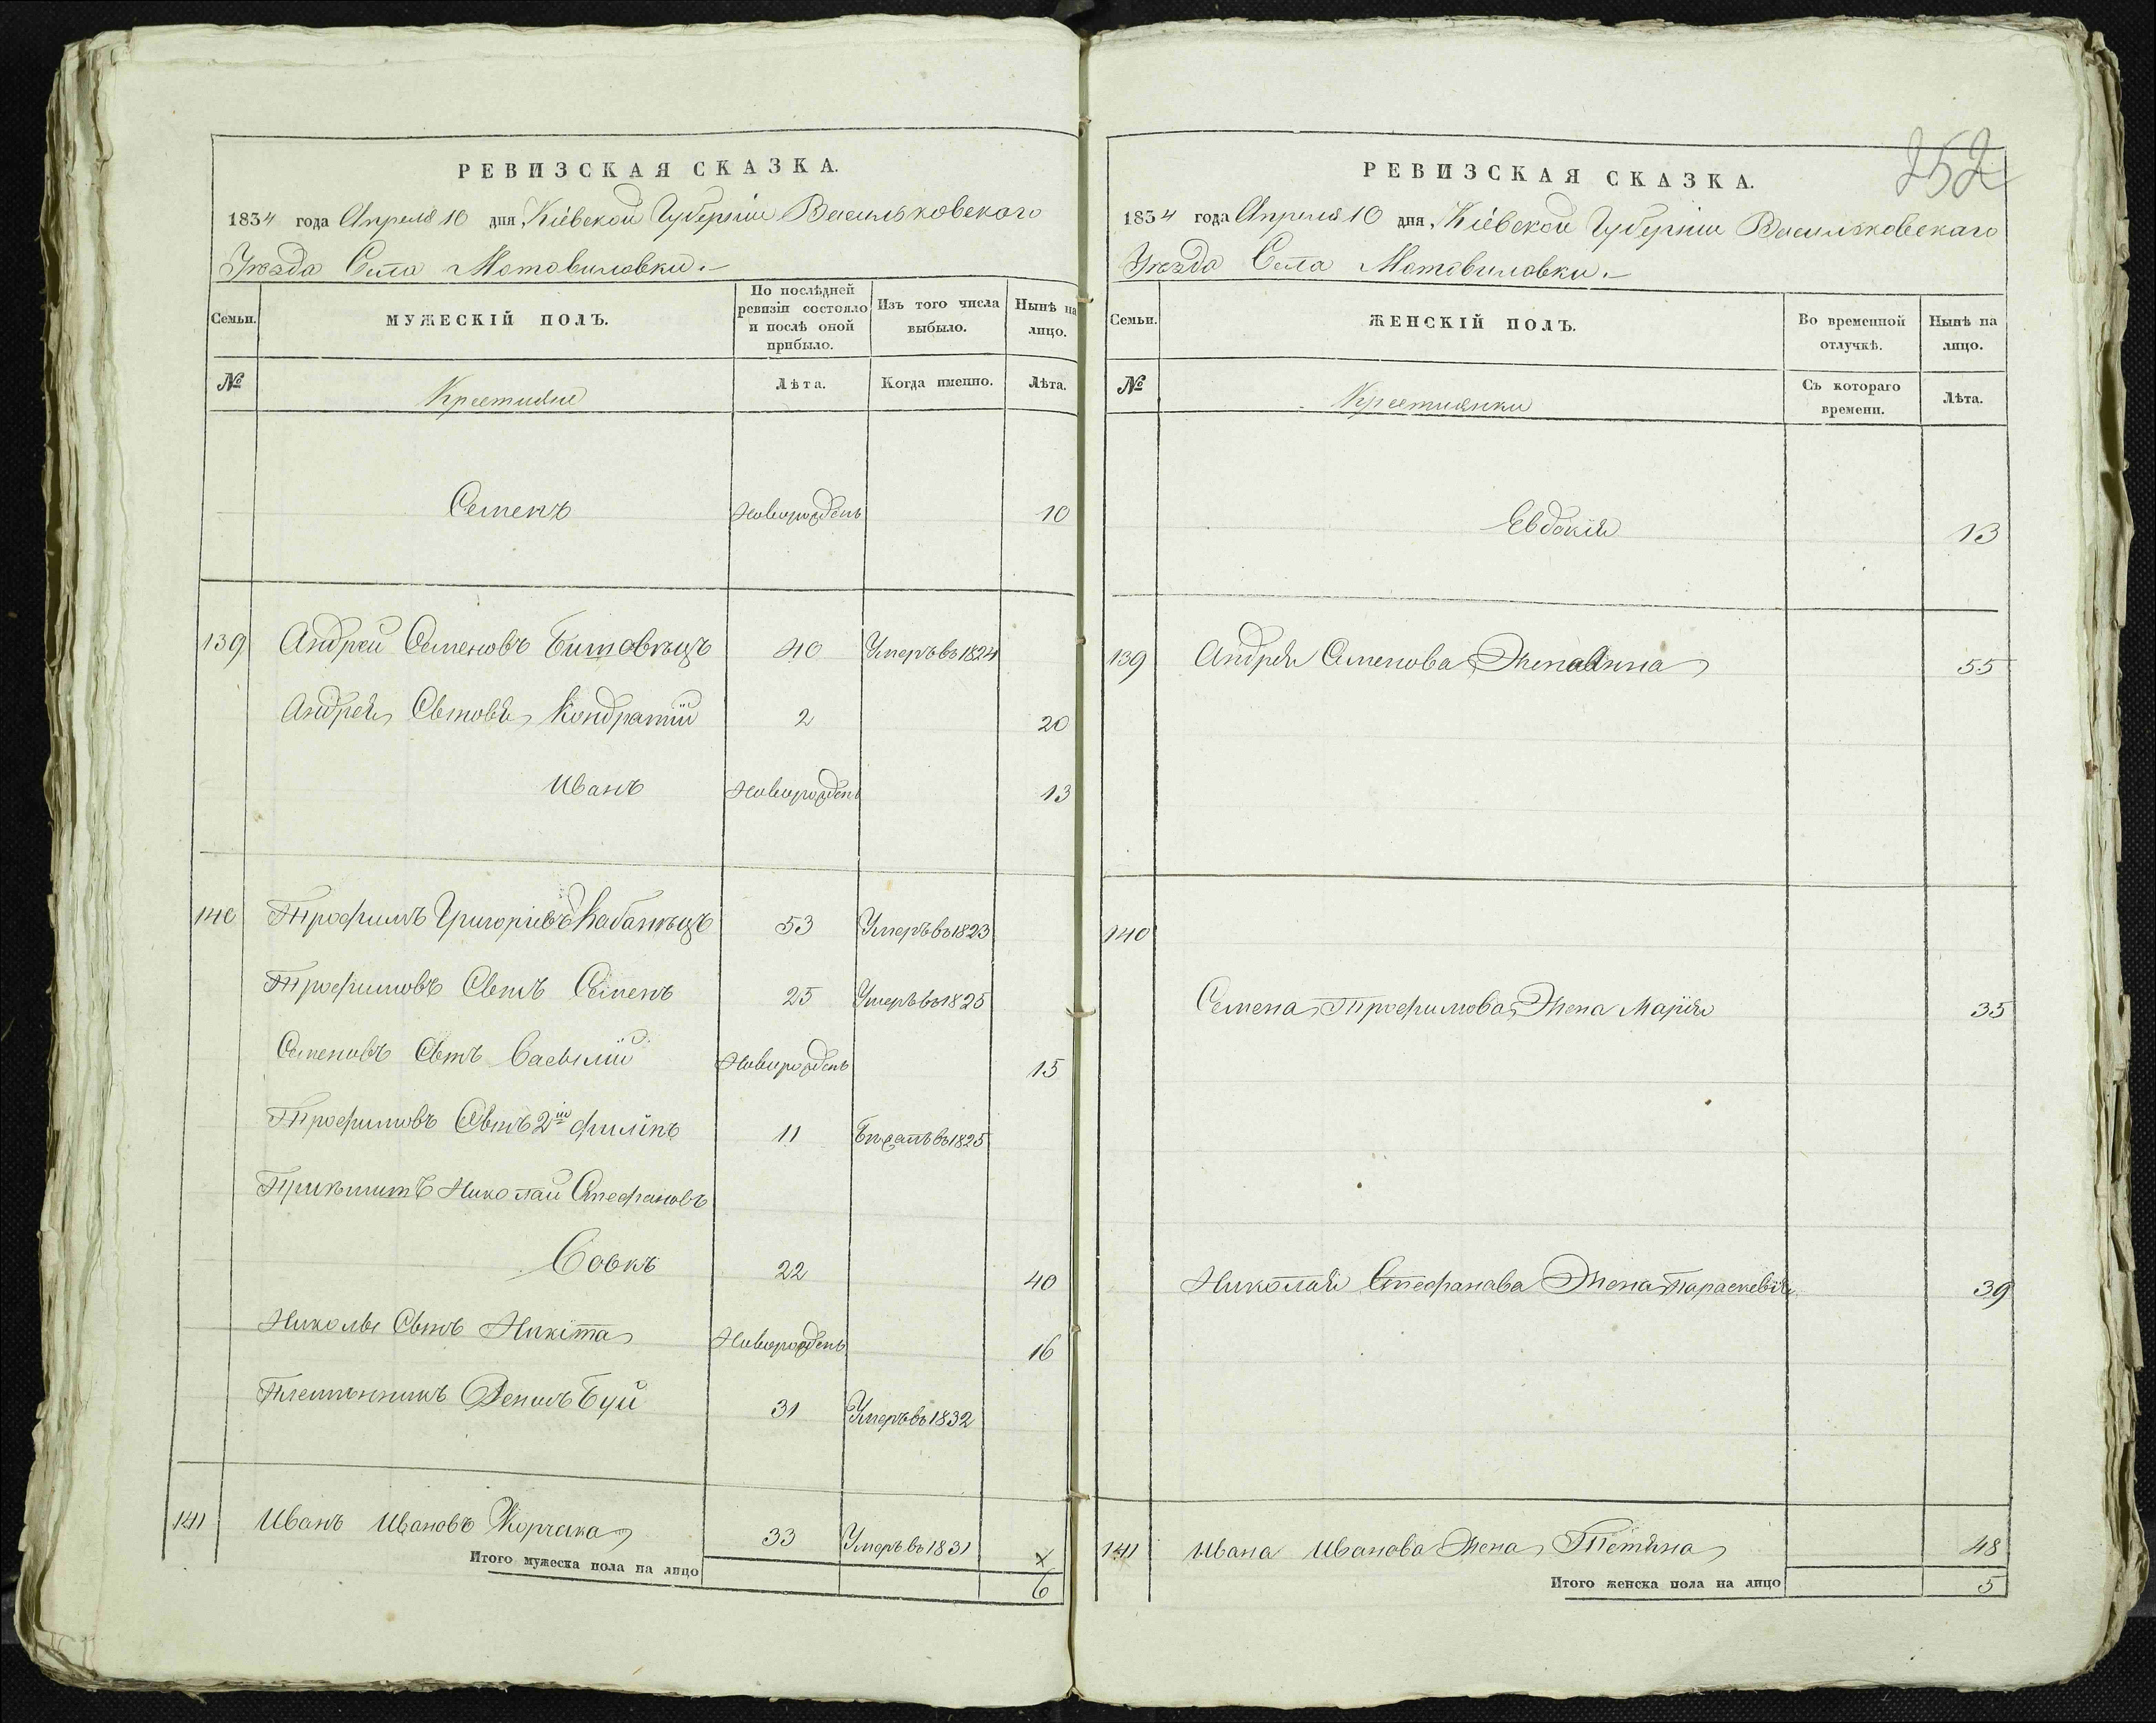 РЕВИЗСКАЯ СКАЗКА.
1834 года Апреля 10 дня, Кіевской Губерніи Васильковского
Уезда Села Мотовиловки.-
Семьи. МУЖЕСКІЙ ПОЛЪ. По послѣдней ревизіи состояло и послѣ оной прибыло. Изъ того числа выбыло. Нынѣ на лицо.
№ Крестияне Лѣта. Когда имянно. Лѣта.
Семенъ Новорожденъ 10
139 Андрей Семеновъ Битовѣцъ 40 Умеръ въ 1824
Андрея Сыновья Кондратій 2 20
Иванъ Новорожденъ 13
140 Трофимъ Григоріевъ Кабанѣцъ 53 Умеръ въ 1823
Трофимовъ Сынъ Семенъ 25 Умеръ въ 1825
Семеновъ Сынъ Василій Новорожденъ 15
Трофимовъ Сынъ 2й Филипъ 11 Бѣжалъ въ 1825
Николай Стефановъ
Вовкъ 22 40
Николы Сынъ Никита Новорожденъ 16
Племѣнникъ Денисъ Буй 31 Умеръ въ 1832
141 Иванъ Ивановъ 33 Умеръ въ 1831 x
Итого мужеска пола на лицо 6
252
РЕВИЗСКАЯ СКАЗКА.
1834 года Апреля 10 дня, Кіевской Губерніи Васильковскаго
Уезда Села Мотовиловки.-
Семьи. ЖЕНСКІЙ ПОЛЪ. Во временной отлучкѣ. Нынѣ на лицо.
№ Крестиянки Съ котораго времени. Лѣта.
Евдокія 13
139 Андрея Семенова Жена Анна 55
140
Семена Трофимова Жена Марія 35
Николая Стефанава Жена Параскевія 39
141 Ивана Иванова Жена Тетяна 48
Итого женска пола на лицо 5